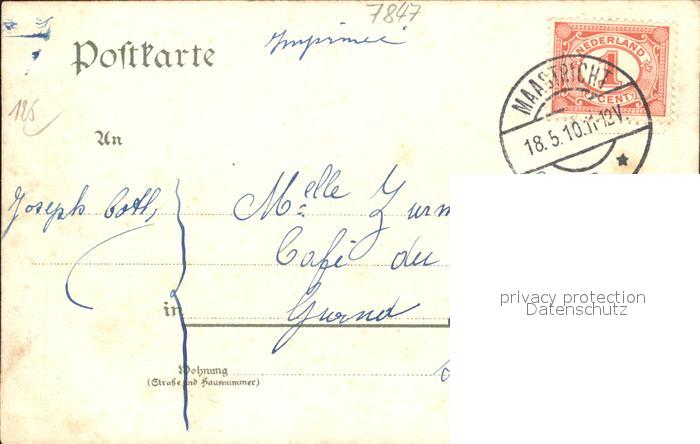 7847
Postkarte
Imprimé
NEDERLAND
1
CENT
MAASTRICHT
18.5.10.11-12V.
125
An
Joseph
Melle
Café du
in
Wohnung
(Straße und Hausnummer)
privacy protection
Datenschutz